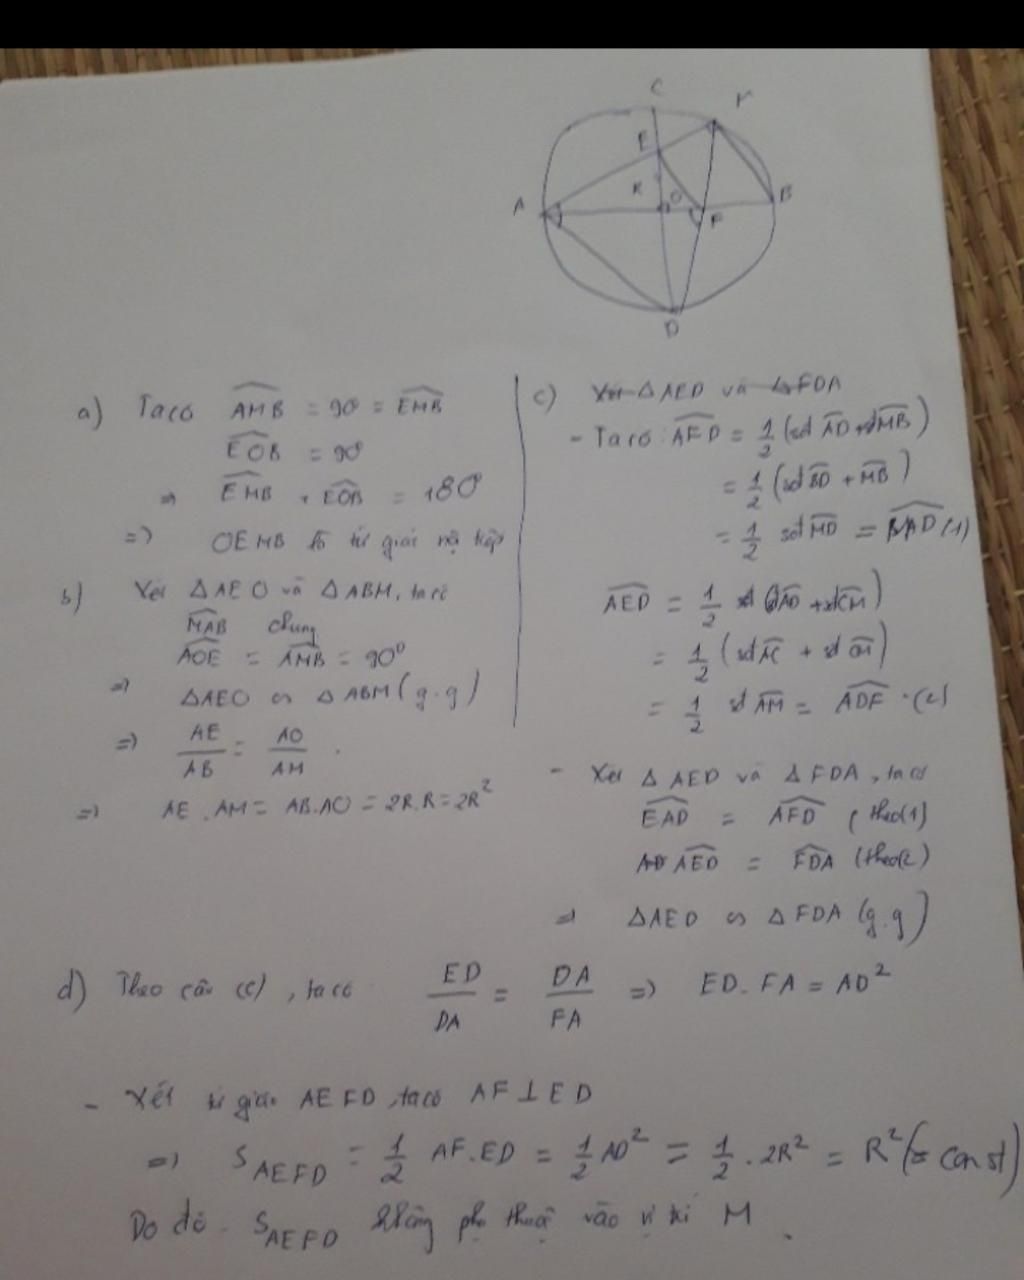 C
M
E
K
O
A
F
B
D
a) Ta có \widehat{AMB} = 90° = \widehat{EMB}
\widehat{EOB} = 90°
⇒ \widehat{EMB} + \widehat{EOB} = 180°
⇒ OEMB là tứ giác nội tiếp
b) Xét △AEO và △ABM, ta có
\widehat{MAB} chung
\widehat{AOE} = \widehat{AMB} = 90°
⇒ △AEO ∽ △ABM (g.g)
⇒ \frac{AE}{AB} = \frac{AO}{AM}.
⇒ AE.AM = AB.AO = 2R.R = 2R²
c) Xét △AED và △FDA
- Ta có: \widehat{AFD} = \frac{1}{2} (sđ \widehat{AD} + sđ \widehat{MB})
= \frac{1}{2} (sđ \widehat{BD} + \widehat{MB})
= \frac{1}{2} sđ \widehat{MD} = \widehat{MAD} (1)
\widehat{AED} = \frac{1}{2} (sđ \widehat{AD} + sđ \widehat{CM})
= \frac{1}{2} (sđ \widehat{AC} + sđ \widehat{CM})
= \frac{1}{2} sđ \widehat{AM} = \widehat{ADF} . (2)
- Xét △AED và △FDA, ta có
\widehat{EAD} = \widehat{AFD} (theo (1))
\widehat{AED} = \widehat{FDA} (theo (2))
⇒ △AED ∽ △FDA (g.g)
d) Theo câu (c), ta có \frac{ED}{DA} = \frac{DA}{FA} ⇒ ED.FA = AD²
- Xét tứ giác AEFD, ta có AF ⊥ ED
⇒ S_{AEFD} = \frac{1}{2} AF.ED = \frac{1}{2} AD² = \frac{1}{2} . 2R² = R² (= const)
Do đó S_{AEFD} không phụ thuộc vào vị trí M.